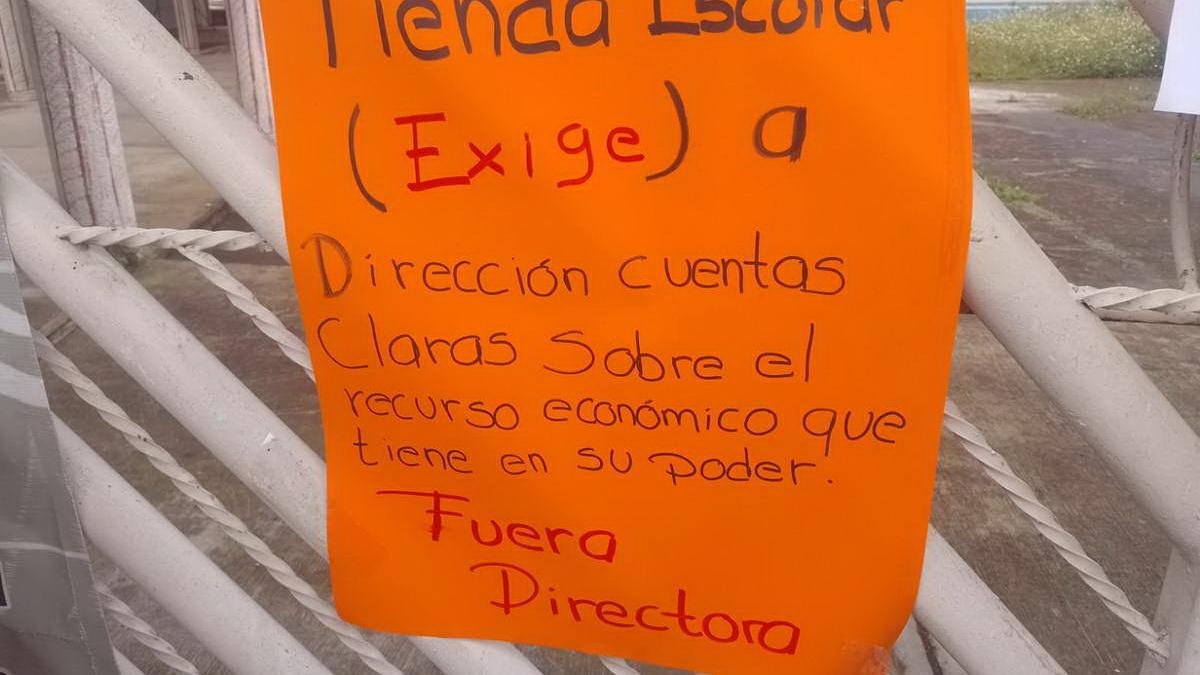 Tienda Escolar
(Exige) a
Dirección cuentas
Claras Sobre el
recurso económico que
tiene en su poder.
Fuera
Directora